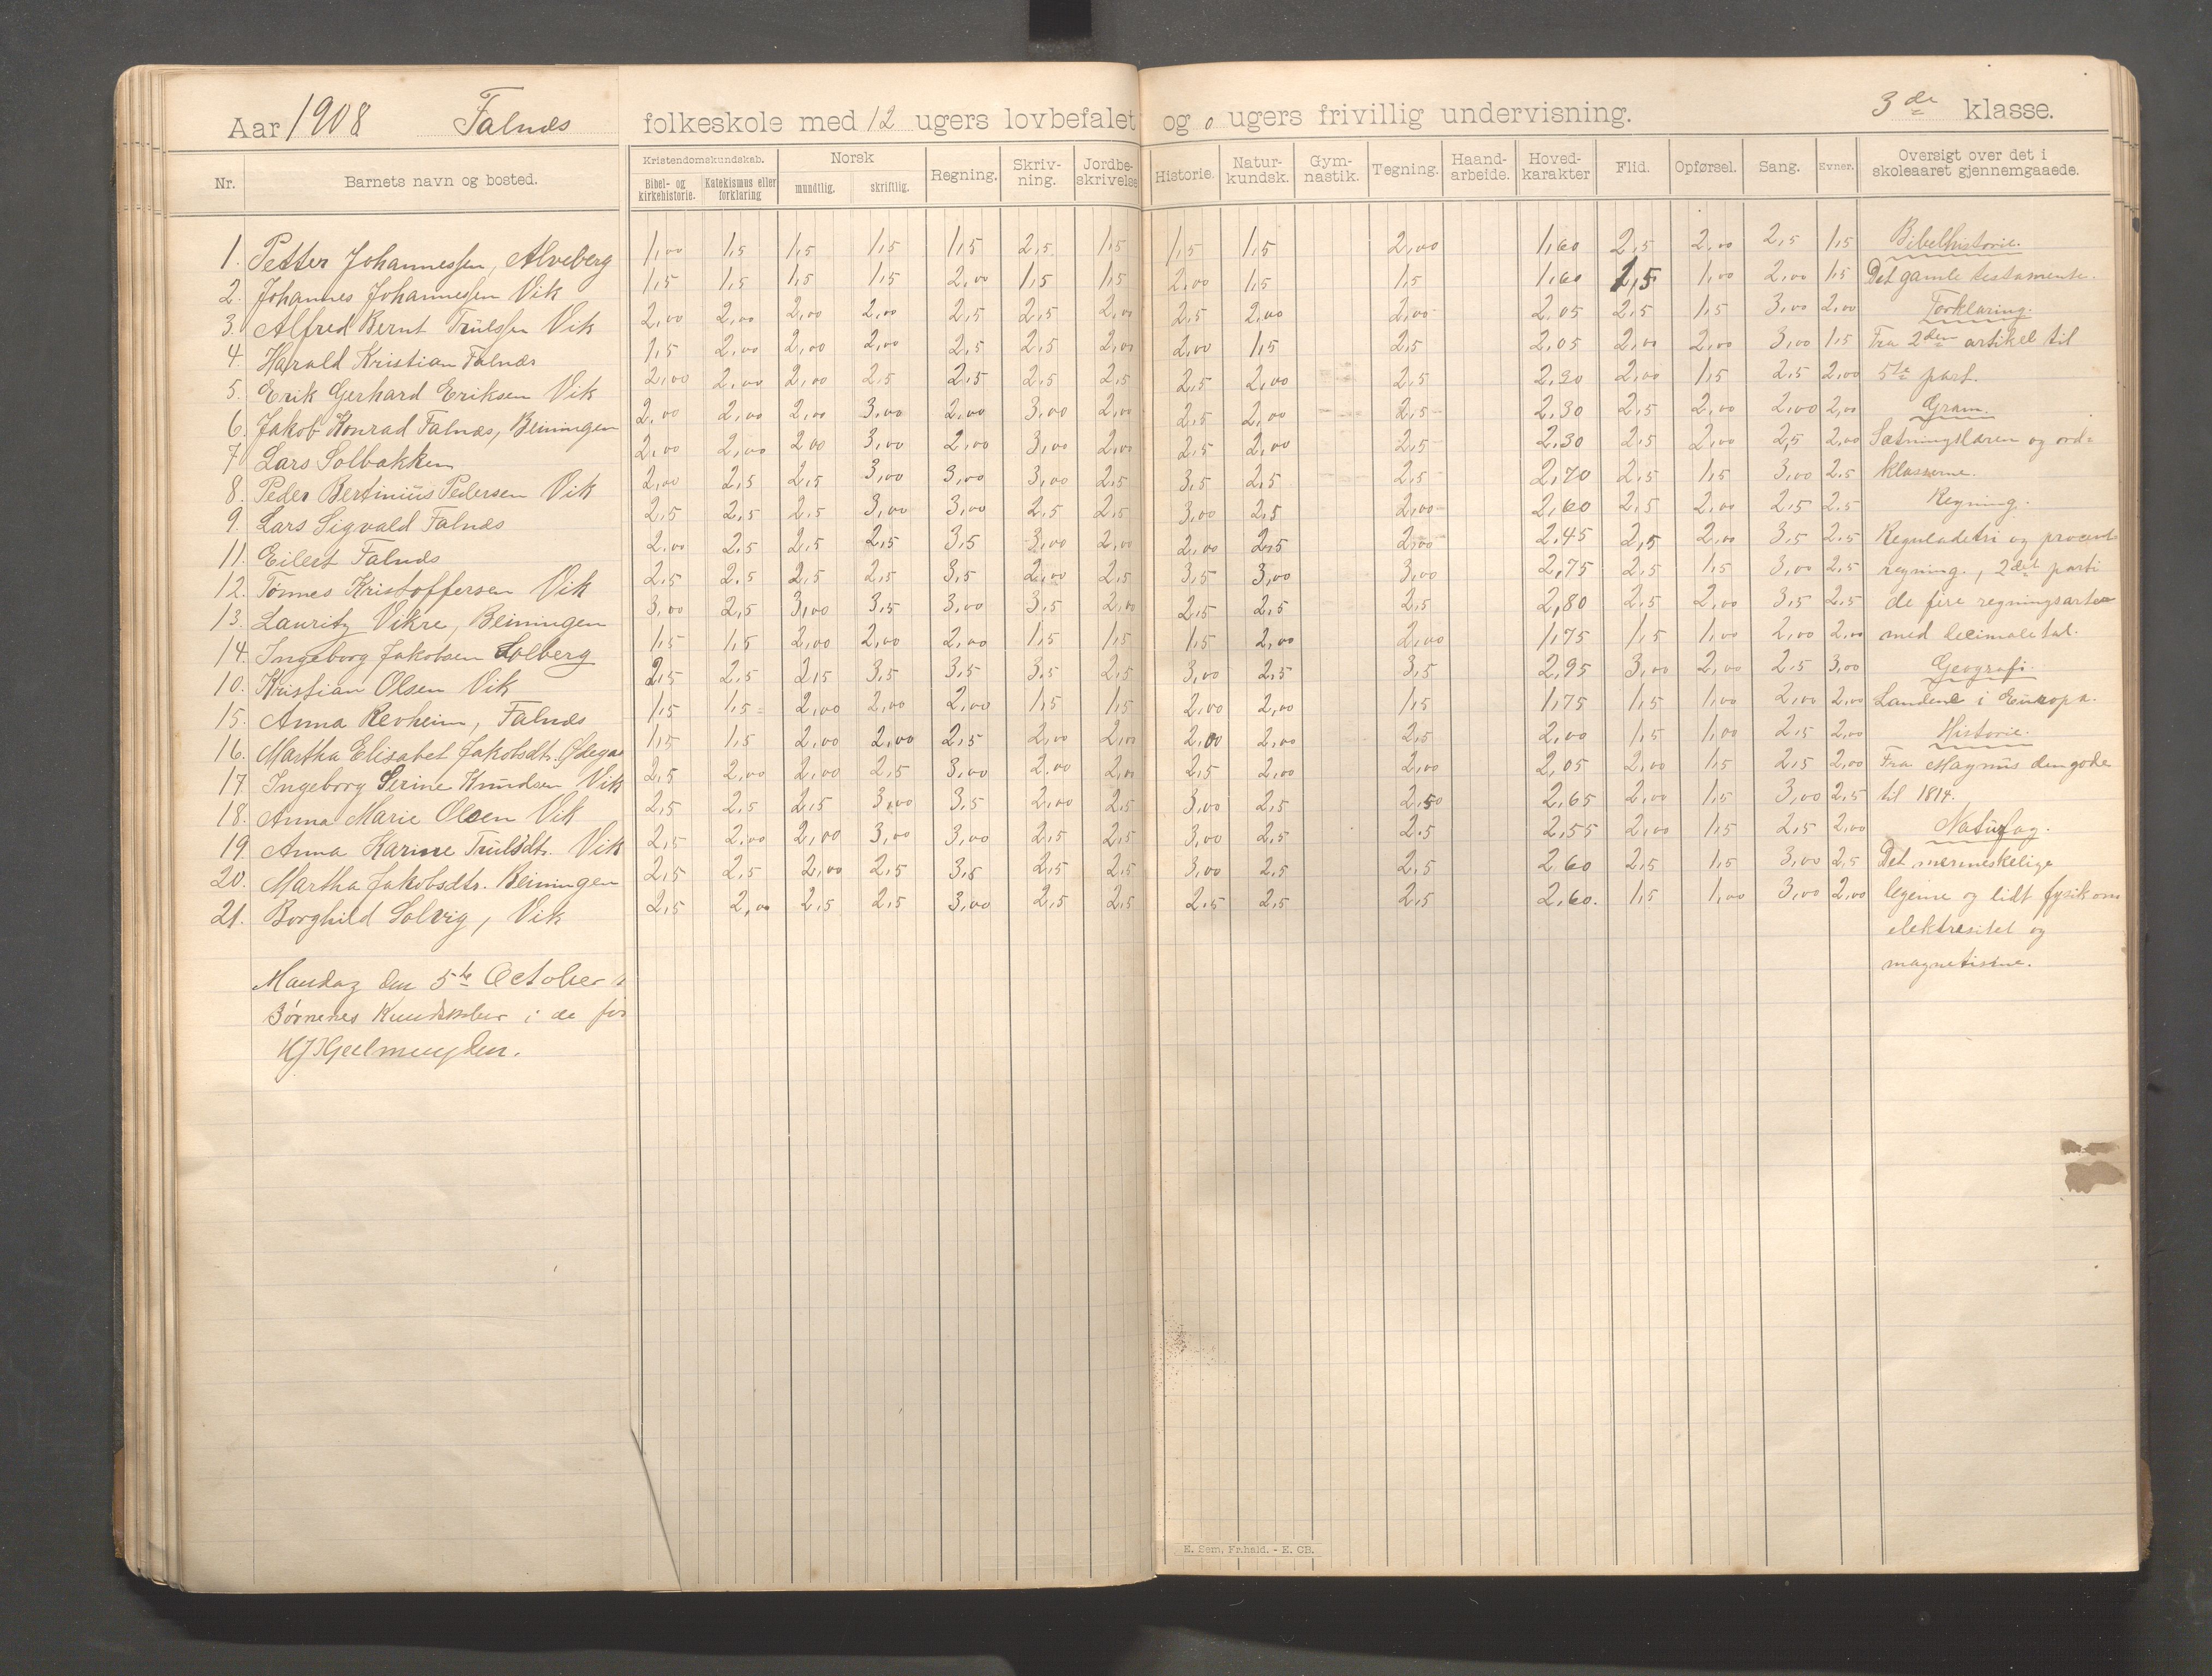 Aar 1908 Falnæs folkeskole med 12 ugers lovbefalet og 0 ugers frivillig undervisning. 3de klasse.
Nr. Barnets navn og bosted. Kristendomskundskab. Bibel- og kirkehistorie. Katekismus eller forklaring Norsk mundtlig. skriftlig. Regning. Skriv-ning. Jordbe-skrivelse Historie. Natur-kundsk. Gym-nastik. Tegning. Haand-arbeide. Hoved-karakter Flid. Opførsel. Sang. Evner. Oversigt over det i skoleaaret gjennemgaaede.
1. Petter Johannessen, Alveberg 1,00 1,5 1,5 1,5 1,5 2,5 1,5 1,5 1,5 2,00 1,60 2,5 2,00 2,5 1,5 Bibelhistorie.
2. Johannes Johannessen Vik 1,5 1,5 1,5 1,5 2,00 1,5 1,5 2,00 1,5 1,5 1,60 1,5 1,00 2,00 1,5 Det gamle testamente.
3. Alfred Bernt Trulssen Vik 2,00 2,00 2,00 2,00 2,5 2,5 2,00 2,5 2,00 2,00 2,05 2,5 1,5 3,00 2,00 Forklaring.
4. Harald Kristian Falnæs 1,5 2,00 2,00 2,00 2,5 2,5 2,00 2,00 1,5 2,5 2,05 2,00 2,00 3,00 1,5 Fra 2den artikel til
5. Erik Gerhard Eriksen Vik 2,00 2,00 2,00 2,5 2,5 2,5 2,5 2,5 2,00 2,5 2,20 2,00 1,5 2,5 2,00 5te part.
6. Jakob Konrad Falnæs, Beiningen 2,00 2,00 2,00 3,00 2,00 3,00 2,00 2,5 2,00 2,5 2,30 2,5 2,00 2,00 2,00 Gram.
7 Lars Solbakken 2,00 2,00 2,00 3,00 2,00 3,00 2,00 2,5 2,00 2,5 2,30 2,5 2,00 2,5 2,00 Sætningslæren og ord=
8. Peder Bertinius Pedersen Vik 2,00 2,5 2,5 3,00 3,00 3,00 2,5 3,5 2,5 2,5 2,70 2,5 1,5 3,00 2,5 klasserne.
9. Lars Sigvald Falnæs 2,5 2,5 2,5 3,00 3,00 2,5 2,5 3,00 2,5 2,00 2,60 2,5 2,00 2,5 2,5 Regning.
11. Eilert Falnæs 2,00 2,5 2,5 2,5 3,5 3,00 2,00 2,00 2,5 2,00 2,45 2,5 2,00 3,5 2,5 Reguladetri og procent
12. Tønnes Kristoffersen Vik 2,5 2,5 2,5 2,5 3,5 2,00 2,5 3,5 3,00 3,00 2,75 2,5 1,5 3,00 2,5 regning, 2det parti
13. Lauritz Vikre, Beiningen 3,00 2,5 3,00 3,5 3,00 3,5 2,00 2,5 2,5 2,5 2,80 2,5 2,00 3,5 2,5 de fire regningsarter
14. Ingeborg Jakobsen Solberg 1,5 1,5 2,00 2,00 2,00 1,5 1,5 1,5 2,00 2,00 1,75 1,5 1,00 2,00 2,00 med decimaletal.
10. Kristian Olsen Vik 2,5 2,5 2,5 3,5 3,5 3,5 2,5 3,00 2,5 3,5 2,95 3,00 2,00 2,5 3,00 Geografi.
15. Anna Revheim, Falnæs 1,5 1,5 2,00 2,00 2,00 1,5 1,5 2,00 2,00 1,5 1,75 1,5 1,00 2,00 2,00 Landene i Europa.
16. Martha Elisabet Jakobsdtr. Ødega 1,5 1,5 2,00 2,00 2,5 2,00 2,00 2,00 2,00 2,5 2,00 1,5 1,00 2,5 2,00 Historie.
17. Ingeborg Serine Knudsen Vik 2,5 2,00 2,00 2,5 3,00 2,00 2,00 2,5 2,00 2,00 2,05 2,00 1,5 2,5 2,00 Fra Magnus den gode
18. Anna Marie Olsen Vik 2,5 2,5 2,5 3,00 3,5 2,00 2,5 3,00 2,5 2,50 2,65 2,00 1,5 3,00 2,5 til 1814.
19. Anna Karine Trulsdtr. Vik 2,5 2,00 2,00 3,00 3,00 2,5 2,5 3,00 2,5 2,5 2,55 2,00 1,5 2,5 2,00 Naturfag.
20. Martha Jakobsdtr. Beiningen 2,5 2,5 2,00 2,5 3,5 2,5 2,5 3,00 2,5 2,5 2,60 2,5 1,5 3,00 2,5 Det menneskelige
21. Borghild Solvig, Vik 2,5 2,00 2,5 2,5 3,00 2,5 2,5 2,5 2,5 2,5 2,60. 1,5 1,00 3,00 2,00 legeme og lidt fysik om
elektresitet og
magnetisme.
Mandag den 5te October
Børnenes Kundskaber i de for
HJGeelmuyden.
E. Sem, Fr.hald. - E. CB.